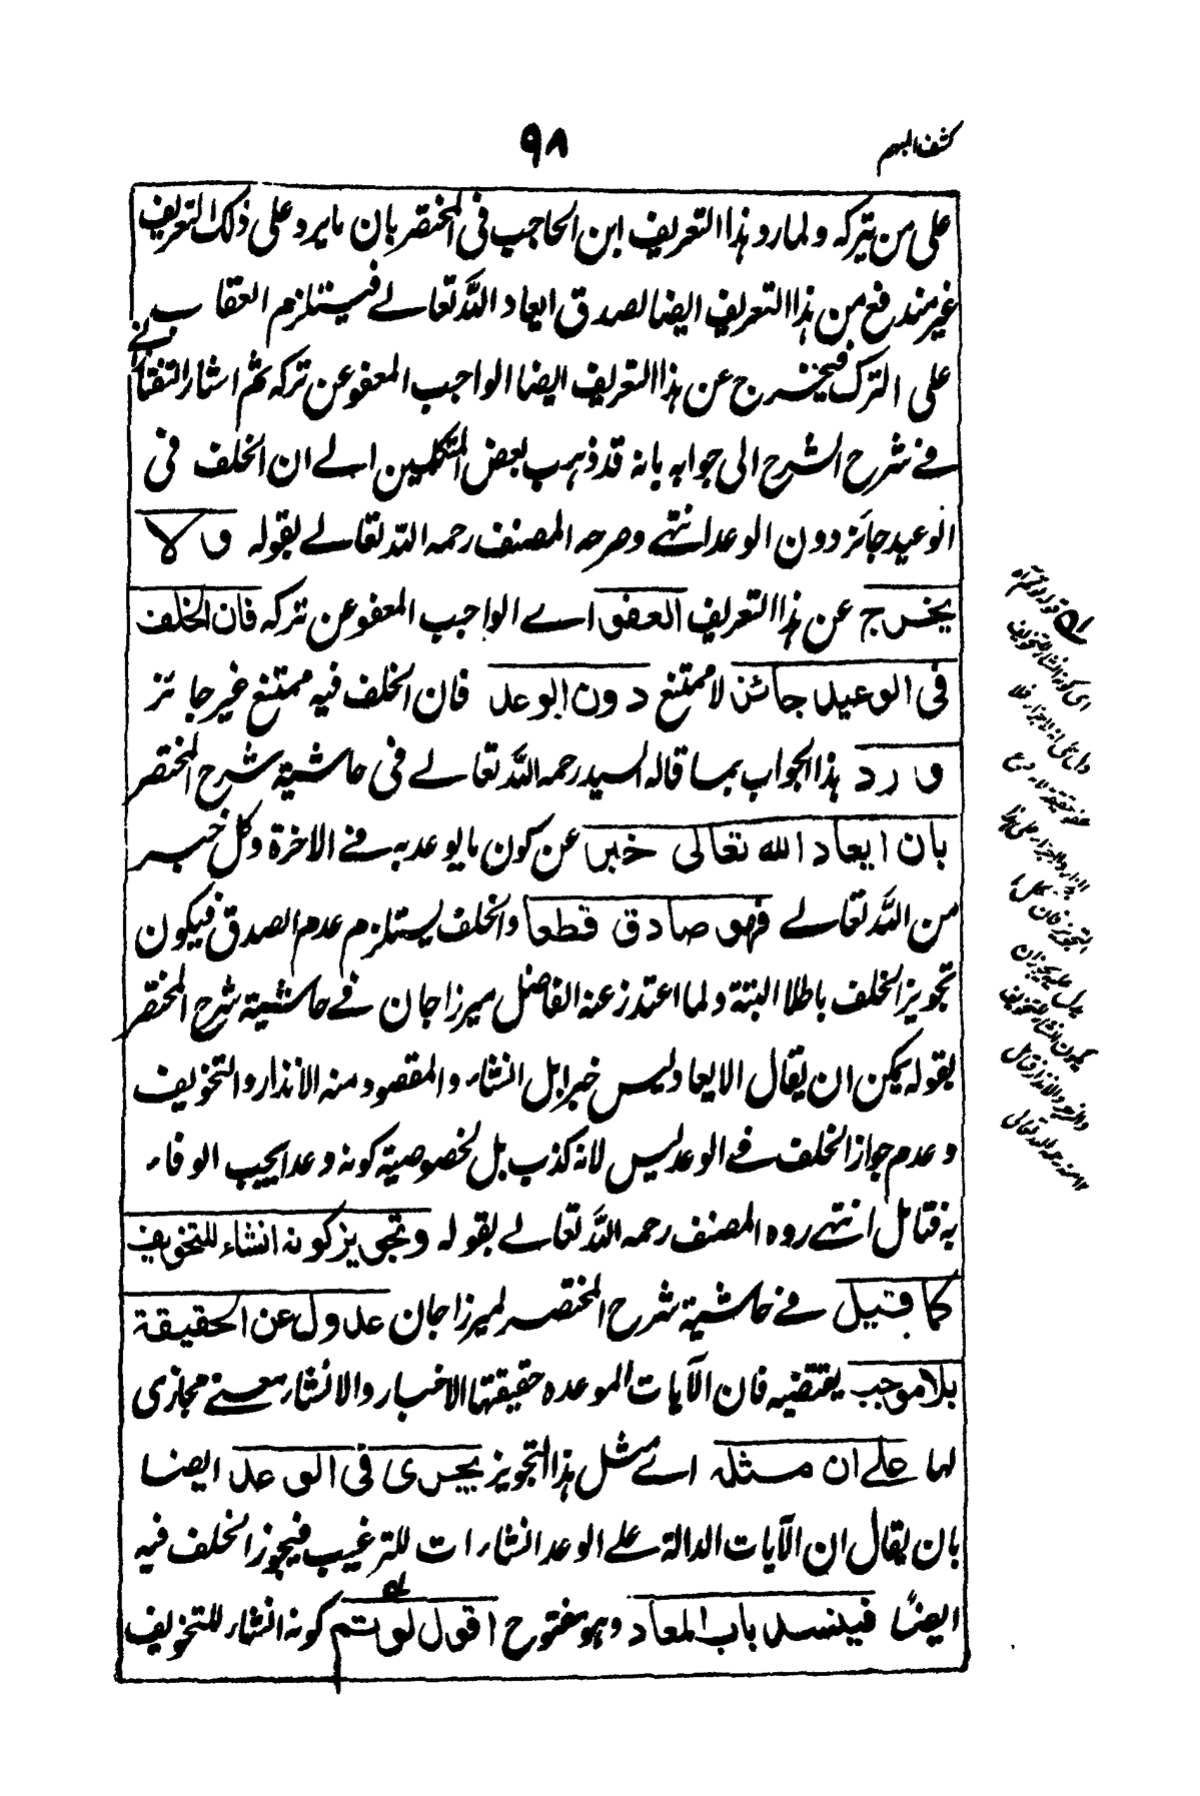 كشف المبهم
٩٨
على من تيركه ولما رد هذا التعريف ابن الحاجب فى المختصر بان ما يرد على ذلك التعريف
غير مندفع من هذا التعريف ايضا لصدق ايعاد الله تعالے فيستلزم العقاب
على الترك فيخرج عن هذا التعريف ايضا الواجب المعفو عن تركه ثم اشار التفتازانے
فے شرح الشرح الى جوابه بانه قد ذهب بعض المتكلمين الے ان الخلف فى
الوعيد جائز دون الوعد انتهے وصرحه المصنف رحمه الله تعالے بقوله ولا
يخرج عن هذا التعريف العفو اے الواجب المعفو عن تركه فان الخلف
فى الوعيد جائز لا ممتنع دون الوعد فان الخلف فيه ممتنع غير جائز
ورد هذا الجواب بما قاله السيد رحمه الله تعالے فى حاشية شرح المختصر
بان ايعاد الله تعالى خبر عن كون ما يوعد به فے الاخرة وكل خبر
من الله تعالے فهو صادق قطعا والخلف يستلزم عدم الصدق فيكون
تجويز الخلف باطلا البتة ولما اعتذر عنه الفاضل ميرزا جان فے حاشية شرح المختصر
بقوله يمكن ان يقال الايعاد ليس خبرا بل انشاء والمقصود منه الانذار والتخويف
وعدم جواز الخلف فے الوعد ليس لانه كذب بل لخصوصية كونه وعدا يجب الوفاء
به فتامل انتهے رده المصنف رحمه الله تعالے بقوله وتجويز كونه انشاء للتخويف
كما قيل فے حاشية شرح المختصر لميرزا جان عدول عن الحقيقة
بلا موجب يقتضيه فان الآيات الموعدة حقيقتها الاخبار والانشاء معنے مجازى
لها علے ان مثله اے مثل هذا التجويز يجرى فى الوعد ايضا
بان يقال ان الآيات الدالة علے الوعد انشاءات للترغيب فيجوز الخلف فيه
ايضا فينسد باب المعاد وهو مفتوح اقول لو تم كونه انشاء للتخويف